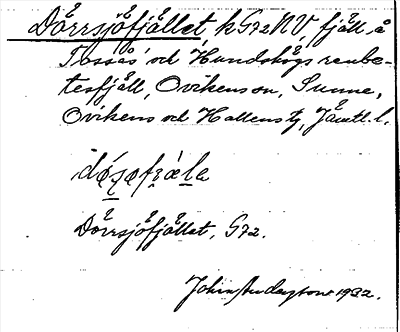 Dörrsjöfjället, k G72NV, fjäll å
Tossås' och Hundshögs renbe-
tesfjäll, Ovikens sn, Sunne,
Ovikens och Hallens tg, Jämtl. l.
Dörrsjöfjället, G72.
1932.